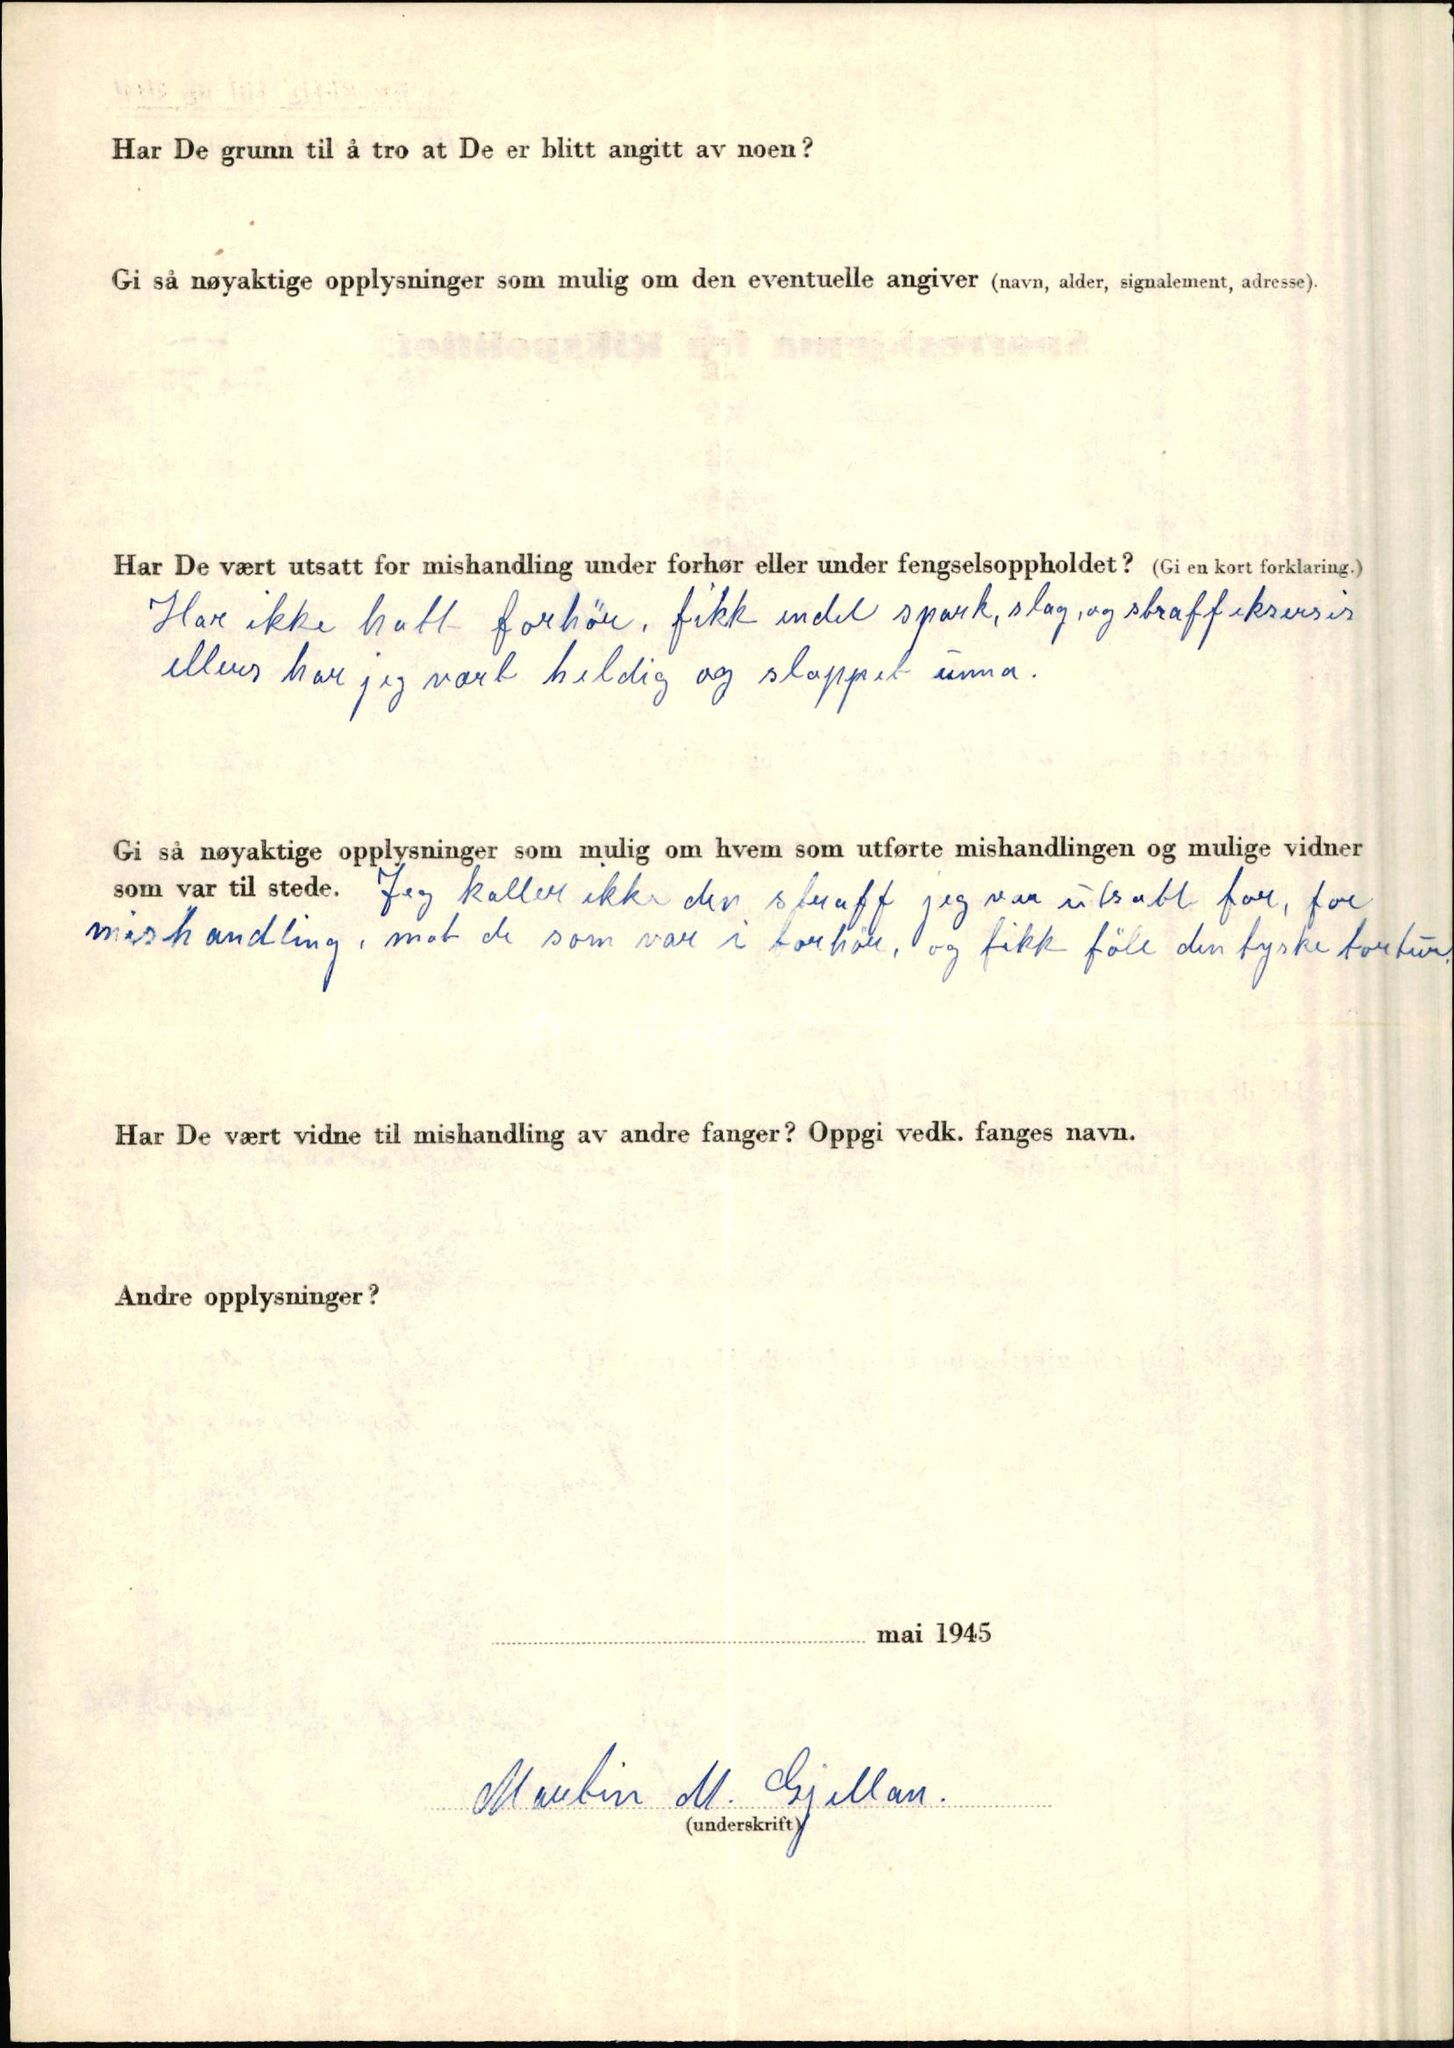 Har De grunn til å tro at De er blitt angitt av noen?
Gi så nøyaktige opplysninger som mulig om den eventuelle angiver (navn, alder, signalement, adresse).
Har De vært utsatt for mishandling under forhør eller under fengselsoppholdet? (Gi en kort forklaring.)
Har ikke hatt forhör, fikk endel spark, slag, og straffeksersis
ellers har jeg vært heldig og sloppet unna.
Gi så nøyaktige opplysninger som mulig om hvem som utførte mishandlingen og mulige vidner
som var til stede. Jeg kaller ikke den straff jeg var utsatt for, for
mishandling, mot de som var i forhör, og fikk föle den tyske tortur.
Har De vært vidne til mishandling av andre fanger? Oppgi vedk. fanges navn.
Andre opplysninger?
mai 1945
Martin M. Gjellan.
(underskrift)